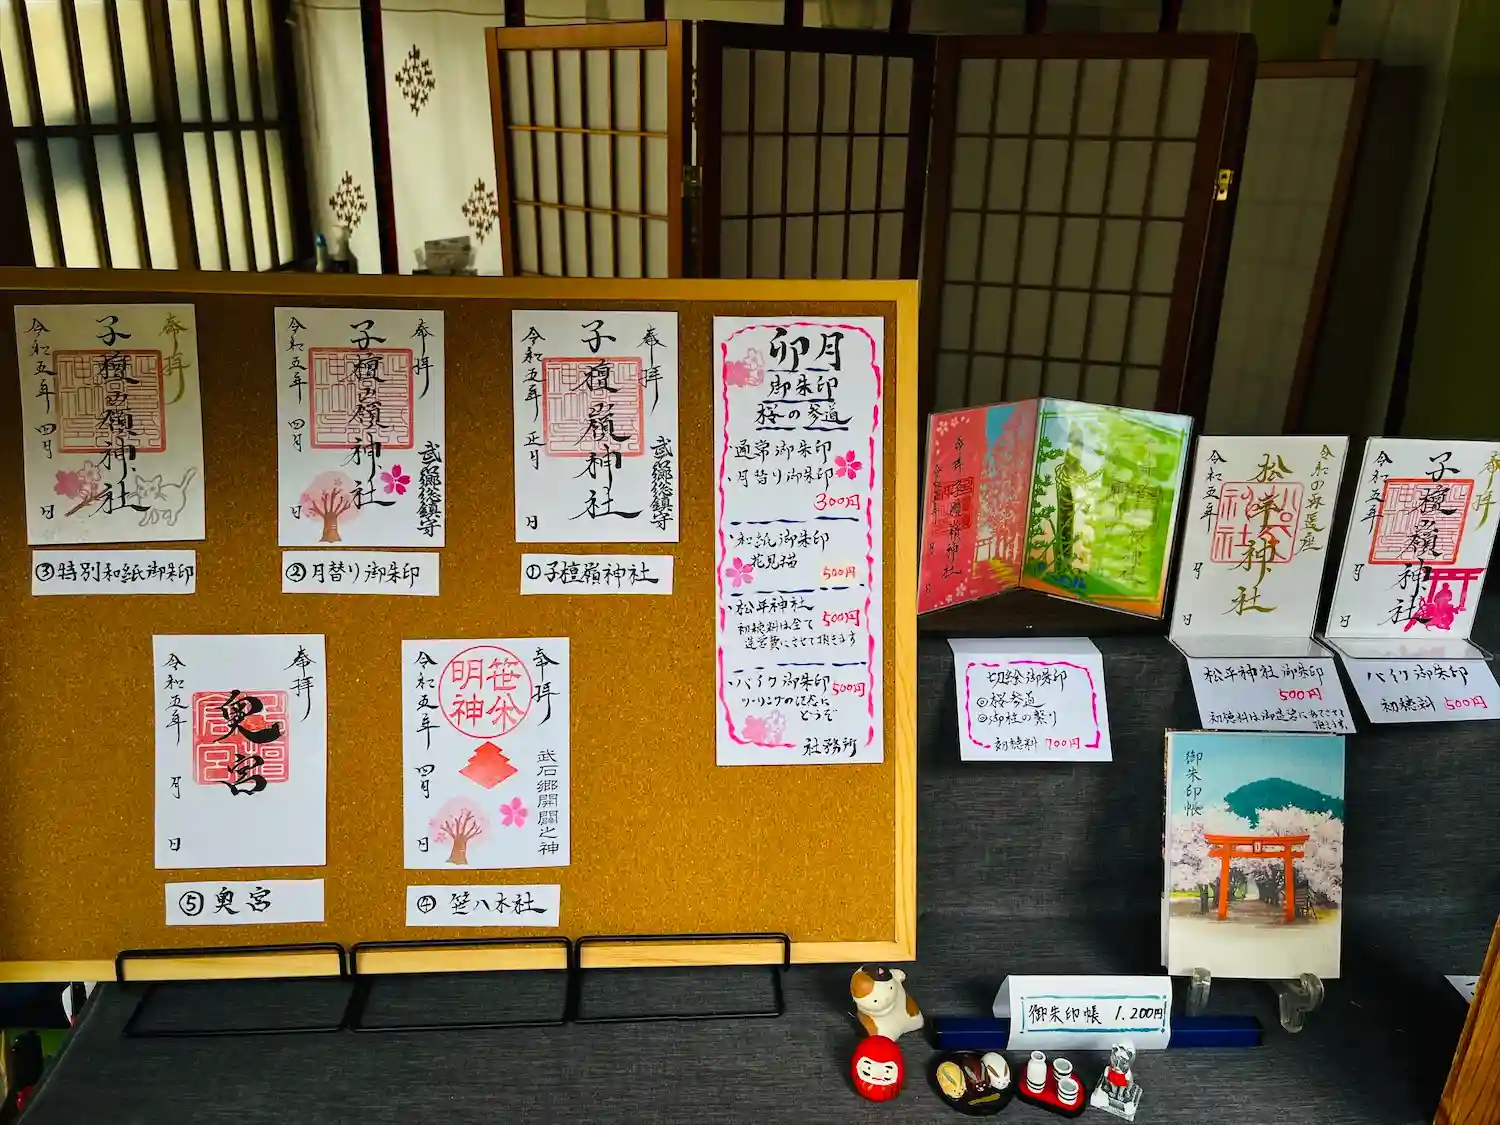 奉拝
子檀嶺神社
令和五年 四月 日
③特別和紙御朱印
奉拝
子檀嶺神社
武郷総鎮守
令和五年 四月 日
②月替り御朱印
奉拝
子檀嶺神社
武郷総鎮守
令和五年 正月 日
①子檀嶺神社
奉拝
奥宮
令和五年 月 日
⑤奥宮
奉拝
笹焼明神
武石郷開闢之神
令和五年 四月 日
④ 笹八木社
卯月
御朱印
桜の参道
・通常御朱印
・月替り御朱印
300円
・和紙御朱印
花見猫
500円
・松平神社
500円
初穂料は全て
造営費にさせて頂きます
・バイク御朱印
500円
ツーリングの記念に
どうぞ
社務所
切絵御朱印
◎桜参道
◎御柱の祭り
初穂料 700円
令和の再建座
松平神社
令和五年
月
日
松平神社御朱印
500円
初穂料は御造営にあてさせて
頂きます。
奉拝
子檀嶺神社
令和五年
月
日
バイク御朱印
初穂料 500円
御朱印帳
御朱印帳 1,200円